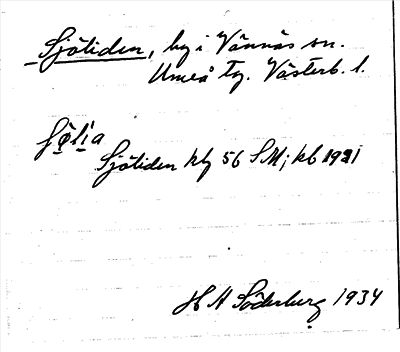 Sjöliden, by i Vännäs sn.
Umeå tg. Västerb. l.
Sjöliden klg 56 SM; kb 1921
H A Söderberg 1934